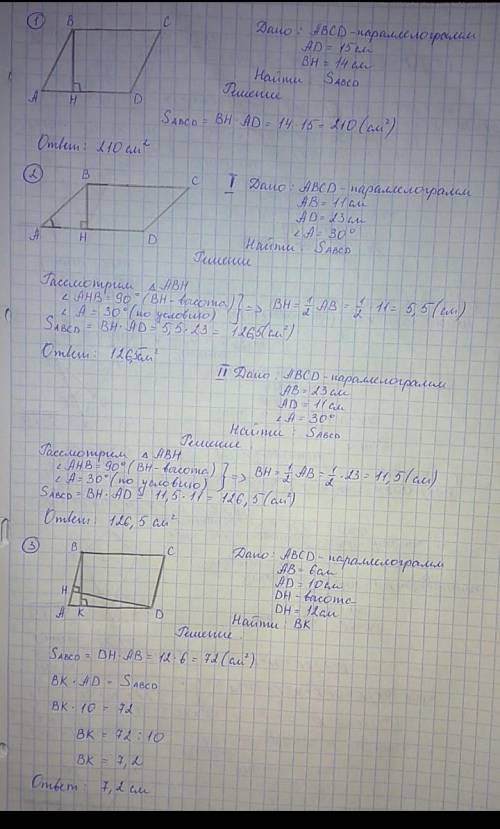 1
B C
A H D
Дано: ABCD - параллелограмм
AD = 15 см
BH = 14 см
Найти: SABCD
Решение
SABCD = BH · AD = 14 · 15 = 210 (см²)
Ответ: 210 см²
2
B C
A H D
I Дано: ABCD - параллелограмм
AB = 11 см
AD = 23 см
∠A = 30°
Найти: SABCD
Решение
Рассмотрим △ ABH
∠AHB = 90° (BH - высота)
∠A = 30° (по условию) } => BH = 1/2 AB = 1/2 · 11 = 5,5 (см)
SABCD = BH · AD = 5,5 · 23 = 126,5 (см²)
Ответ: 126,5 см²
II Дано: ABCD - параллелограмм
AB = 23 см
AD = 11 см
∠A = 30°
Найти: SABCD
Решение
Рассмотрим △ ABH
∠AHB = 90° (BH - высота)
∠A = 30° (по условию) } => BH = 1/2 AB = 1/2 · 23 = 11,5 (см)
SABCD = BH · AD = 11,5 · 11 = 126,5 (см²)
Ответ: 126,5 см²
3
B C
H
A K D
Дано: ABCD - параллелограмм
AB = 6 см
AD = 10 см
DH - высота
DH = 12 см
Найти: BK
Решение
SABCD = DH · AB = 12 · 6 = 72 (см²)
BK · AD = SABCD
BK · 10 = 72
BK = 72 : 10
BK = 7,2
Ответ: 7,2 см